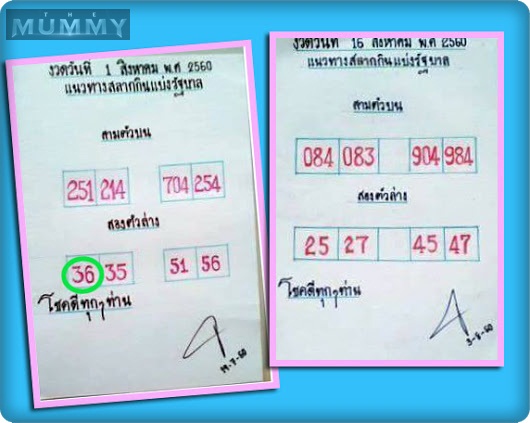 THE
MUMMY
งวดวันที่ 1 สิงหาคม พ.ศ 2560
แนวทางสลากกินแบ่งรัฐบาล
สามตัวบน
251 214 704 254
สองตัวล่าง
36 35 51 56
โชคดีทุกๆท่าน
19-7-60
งวดวันที่ 16 สิงหาคม พ.ศ 2560
แนวทางสลากกินแบ่งรัฐบาล
สามตัวบน
084 083 904 984
สองตัวล่าง
25 27 45 47
โชคดีทุกๆท่าน
3-8-60